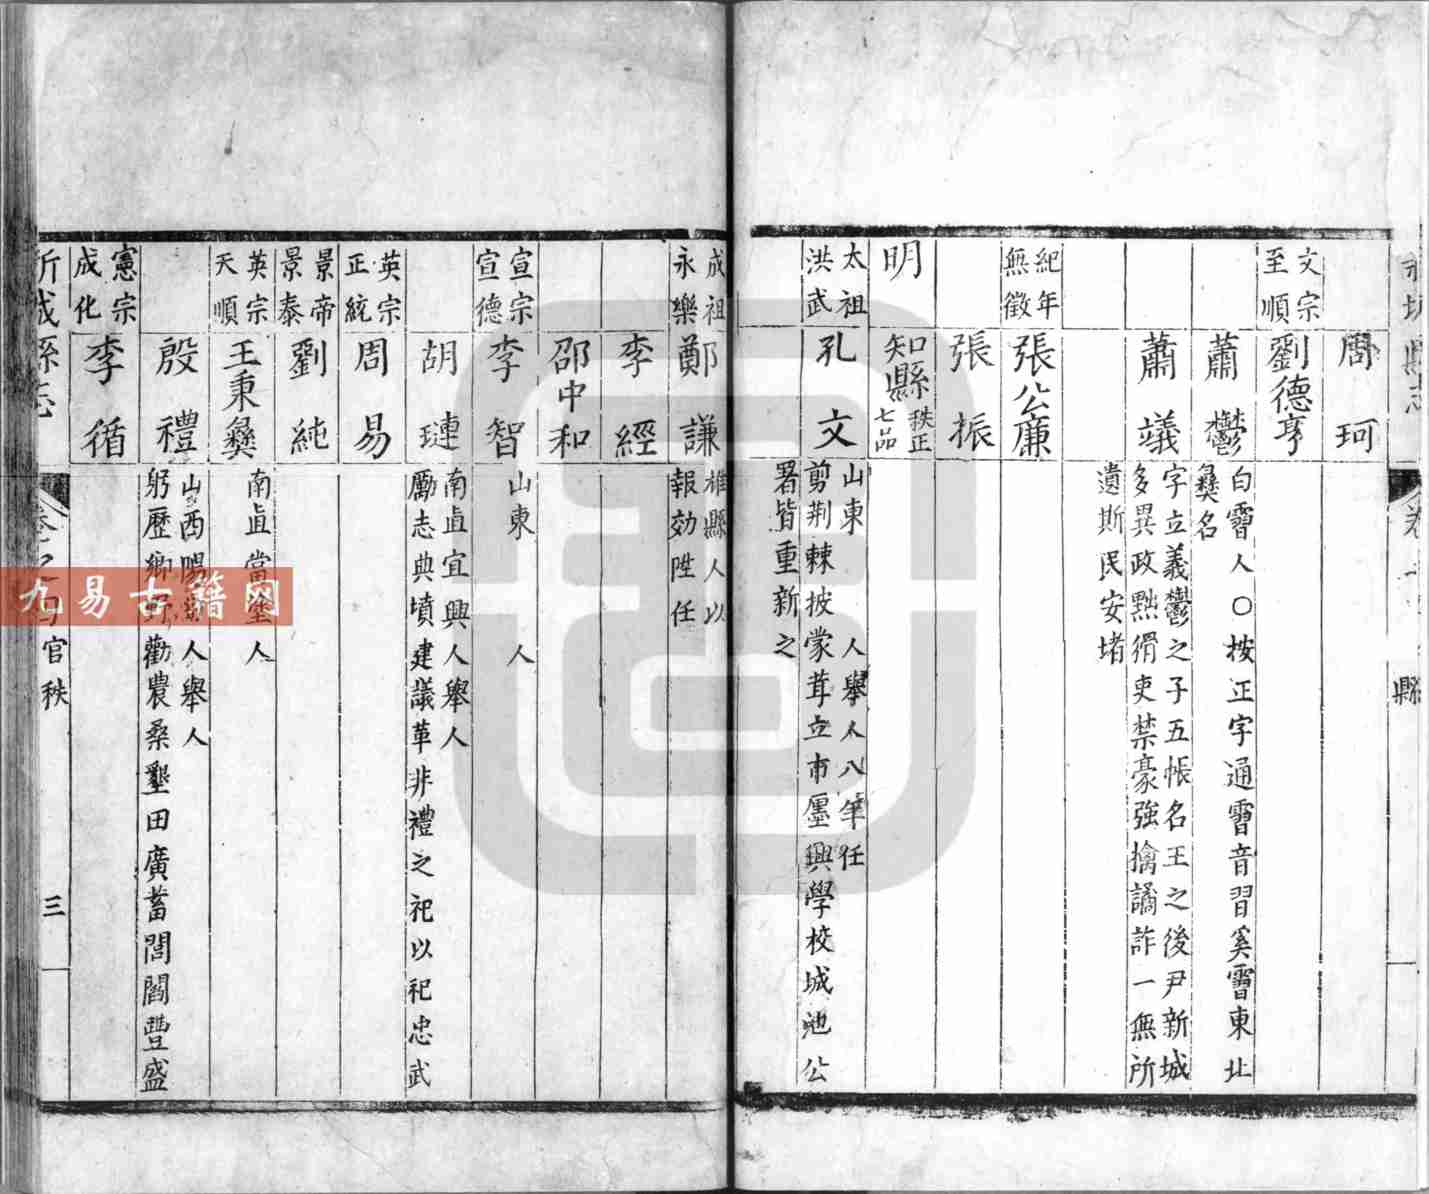 周珂
文宗
至順
劉德亨
蕭鬱
白霫人○按正字通霫音習奚霫東北
彞名
蕭𧣪
字立義鬱之子五帳名王之後尹新城
多異政黜猾吏禁豪強擒譎詐一無所
遺斯民安堵
紀年
無徵
張公廉
張振
明
知縣
秩正
七品
太祖
洪武
孔文
山東 人舉人八年任
剪荆棘披蒙茸立市廛興學校城池公
署皆重新之
成祖
永樂
鄭謙
雄縣人以
報効陞任
李經
邵中和
宣宗
宣德
李智
山東 人
胡璉
南直宜興人舉人
勵志典墳建議革非禮之祀以祀忠武
英宗
正統
周易
景帝
景泰
劉純
英宗
天順
王秉彝
南直當塗人
殷禮
山西陽 人舉人
躬歷鄉野勸農桑墾田廣蓄閭閻豐盛
憲宗
成化
李循
新城縣志
卷之 官秩
三
九易古籍网